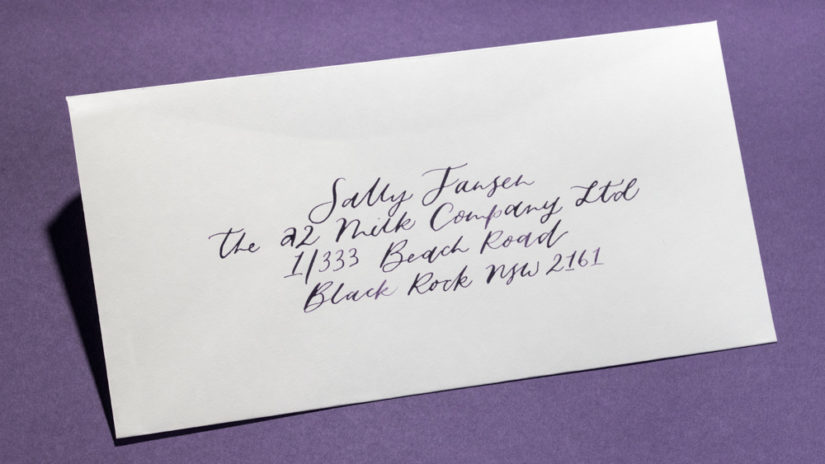 Sally Jansen
The a2 Milk Company Ltd
1/333 Beach Road
Black Rock NSW 2161